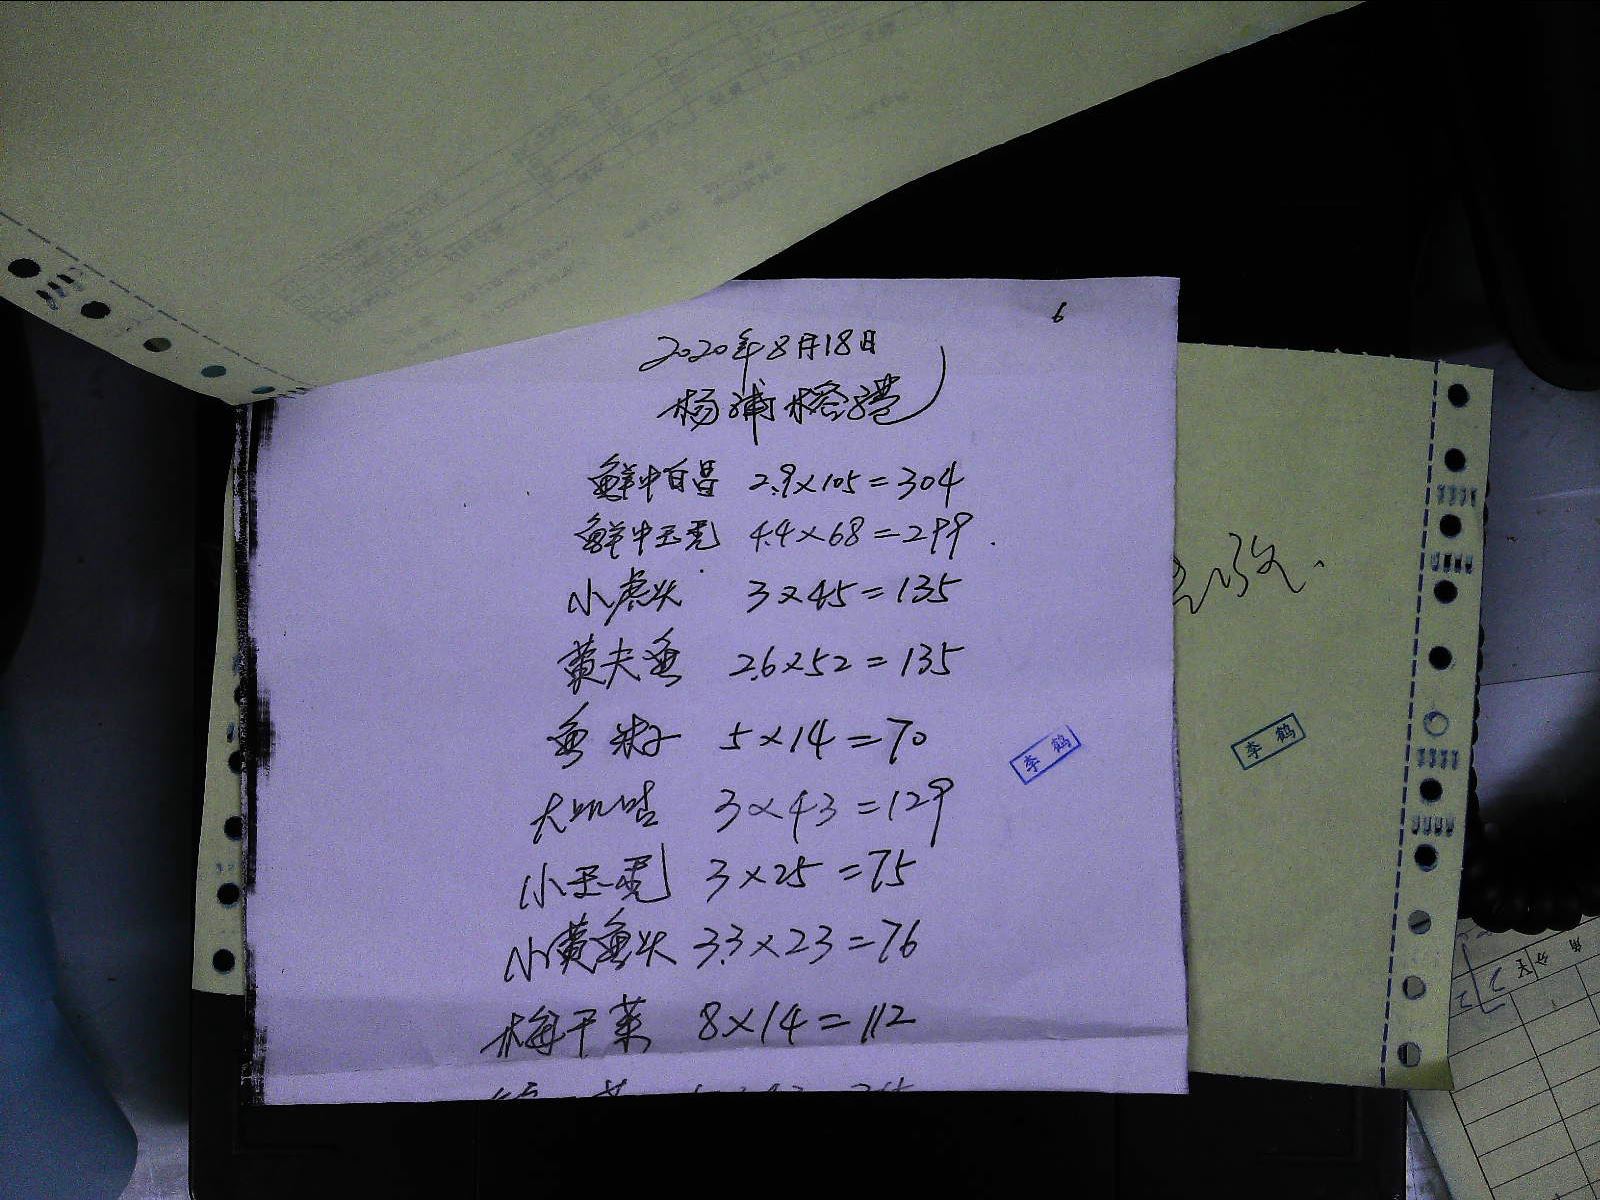 6
2020年8月18日
杨浦榕港
鲜中自昌 2.9×105=304
鲜中玉秃 4.4×68=299
小虎头 3×45=135
黄夫鱼 2.6×52=135
鱼籽 5×14=70
3×43=129
小玉秃 3×25=75
小黄鱼头 3.3×23=76
梅干菜 8×14=112
李鹤
李鹤